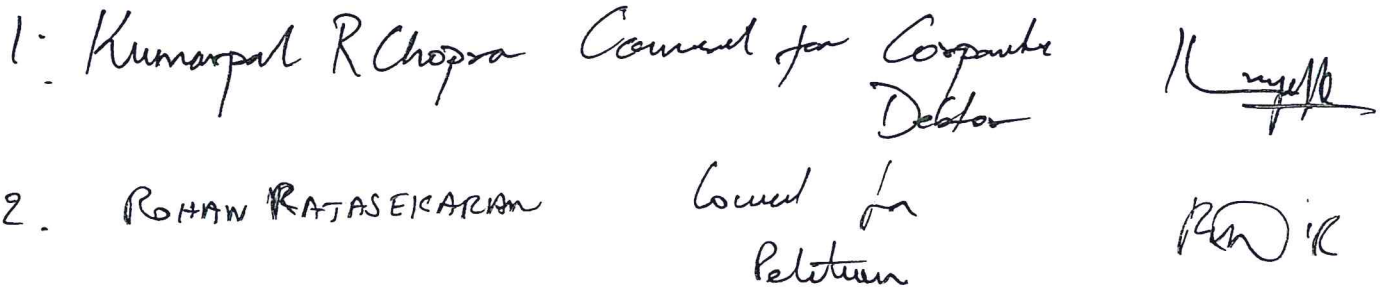 1: Kumarpal R Chopra Counsel for Corporate
Debtor
2. ROHAN RAJASEKARAN Counsel for
Petitioner